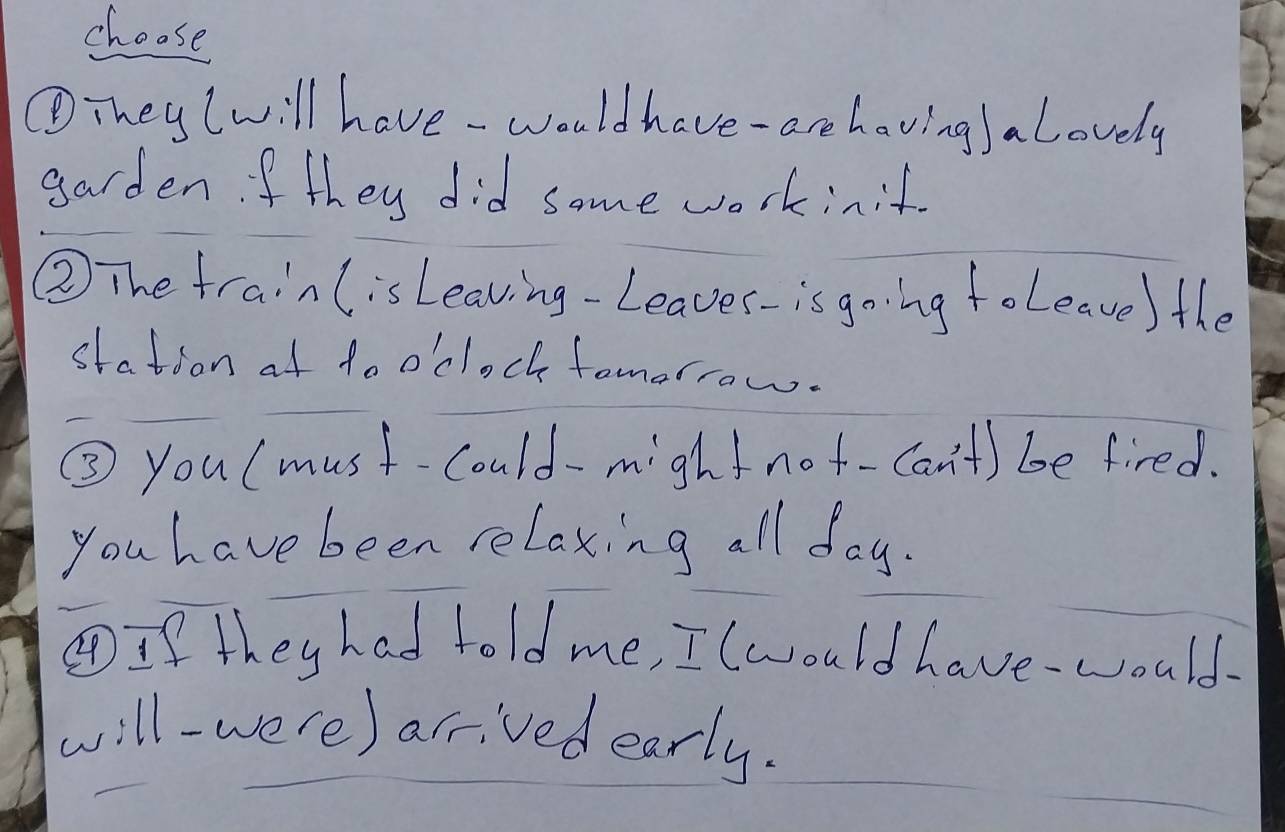 choose
① They (will have - would have - are having) a Lovely
garden if they did some work in it.
② The train (is Leaving - Leaves - is going to Leave) the
station at 10 o'clock tomorrow.
③ you (must - Could - might not - Can't) be tired.
you have been relaxing all day.
④ If they had told me, I (would have - would -
will - were) arrived early.